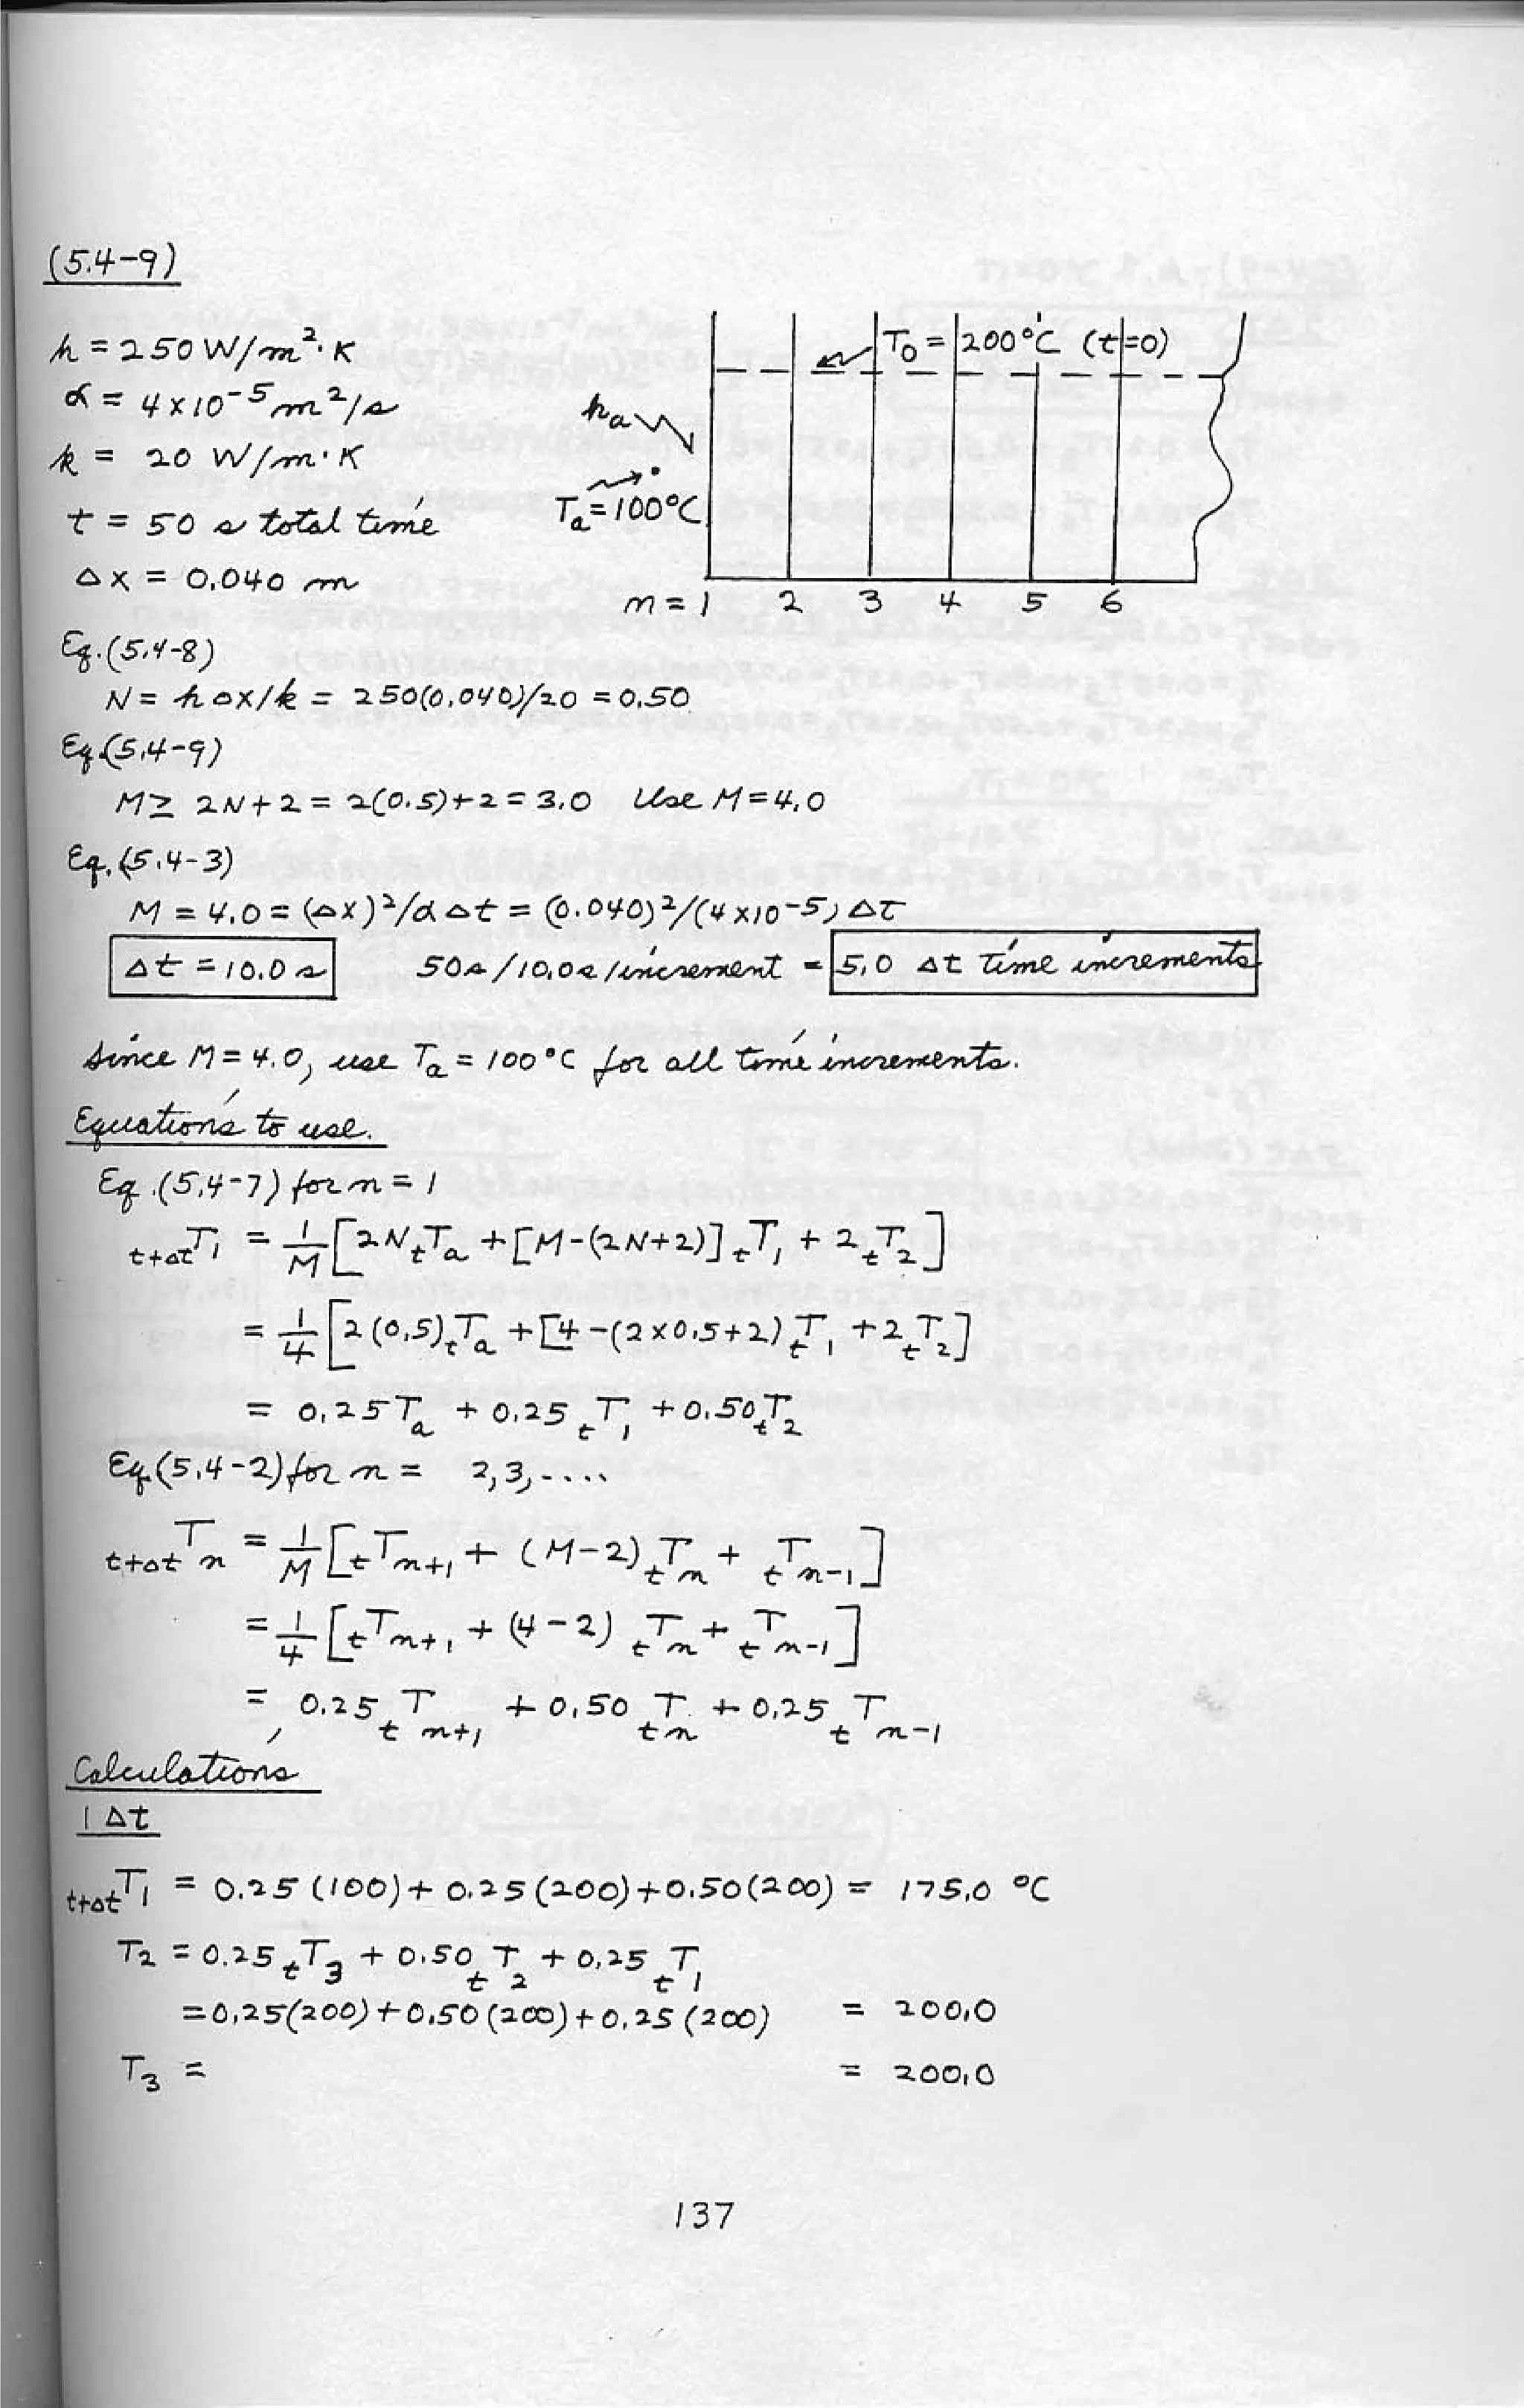 (5.4-9)
h = 250 W/m²·K
α = 4×10⁻⁵ m²/s
k = 20 W/m·K
t = 50 s total time
Δx = 0.040 m
T₀ = 200°C (t=0)
hₐ
Tₐ = 100°C
n = 1 2 3 4 5 6
Eq. (5.4-8)
N = hΔx/k = 250(0.040)/20 = 0.50
Eq. (5.4-9)
M ≥ 2N + 2 = 2(0.5) + 2 = 3.0 Use M = 4.0
Eq. (5.4-3)
M = 4.0 = (Δx)²/αΔt = (0.040)²/(4×10⁻⁵) Δt
Δt = 10.0 s 50s/10.0s/increment = 5.0 Δt time increments
Since M = 4.0, use Tₐ = 100°C for all time increments.
Equations to use.
Eq. (5.4-7) for n = 1
t+ΔtT₁ = 1/M [2N tTₐ + [M-(2N+2)] tT₁ + 2 tT₂]
= 1/4 [2(0.5) tTₐ + [4-(2×0.5+2) tT₁ + 2 tT₂]
= 0.25Tₐ + 0.25 tT₁ + 0.50 tT₂
Eq. (5.4-2) for n = 2,3,....
t+ΔtTₙ = 1/M [tTₙ₊₁ + (M-2) tTₙ + tTₙ₋₁]
= 1/4 [tTₙ₊₁ + (4-2) tTₙ + tTₙ₋₁]
= 0.25 tTₙ₊₁ + 0.50 tTₙ + 0.25 tTₙ₋₁
Calculations
1 Δt
t+ΔtT₁ = 0.25 (100) + 0.25 (200) + 0.50 (200) = 175.0 °C
T₂ = 0.25 tT₃ + 0.50 tT₂ + 0.25 tT₁
= 0.25(200) + 0.50(200) + 0.25(200) = 200.0
T₃ = = 200.0
137